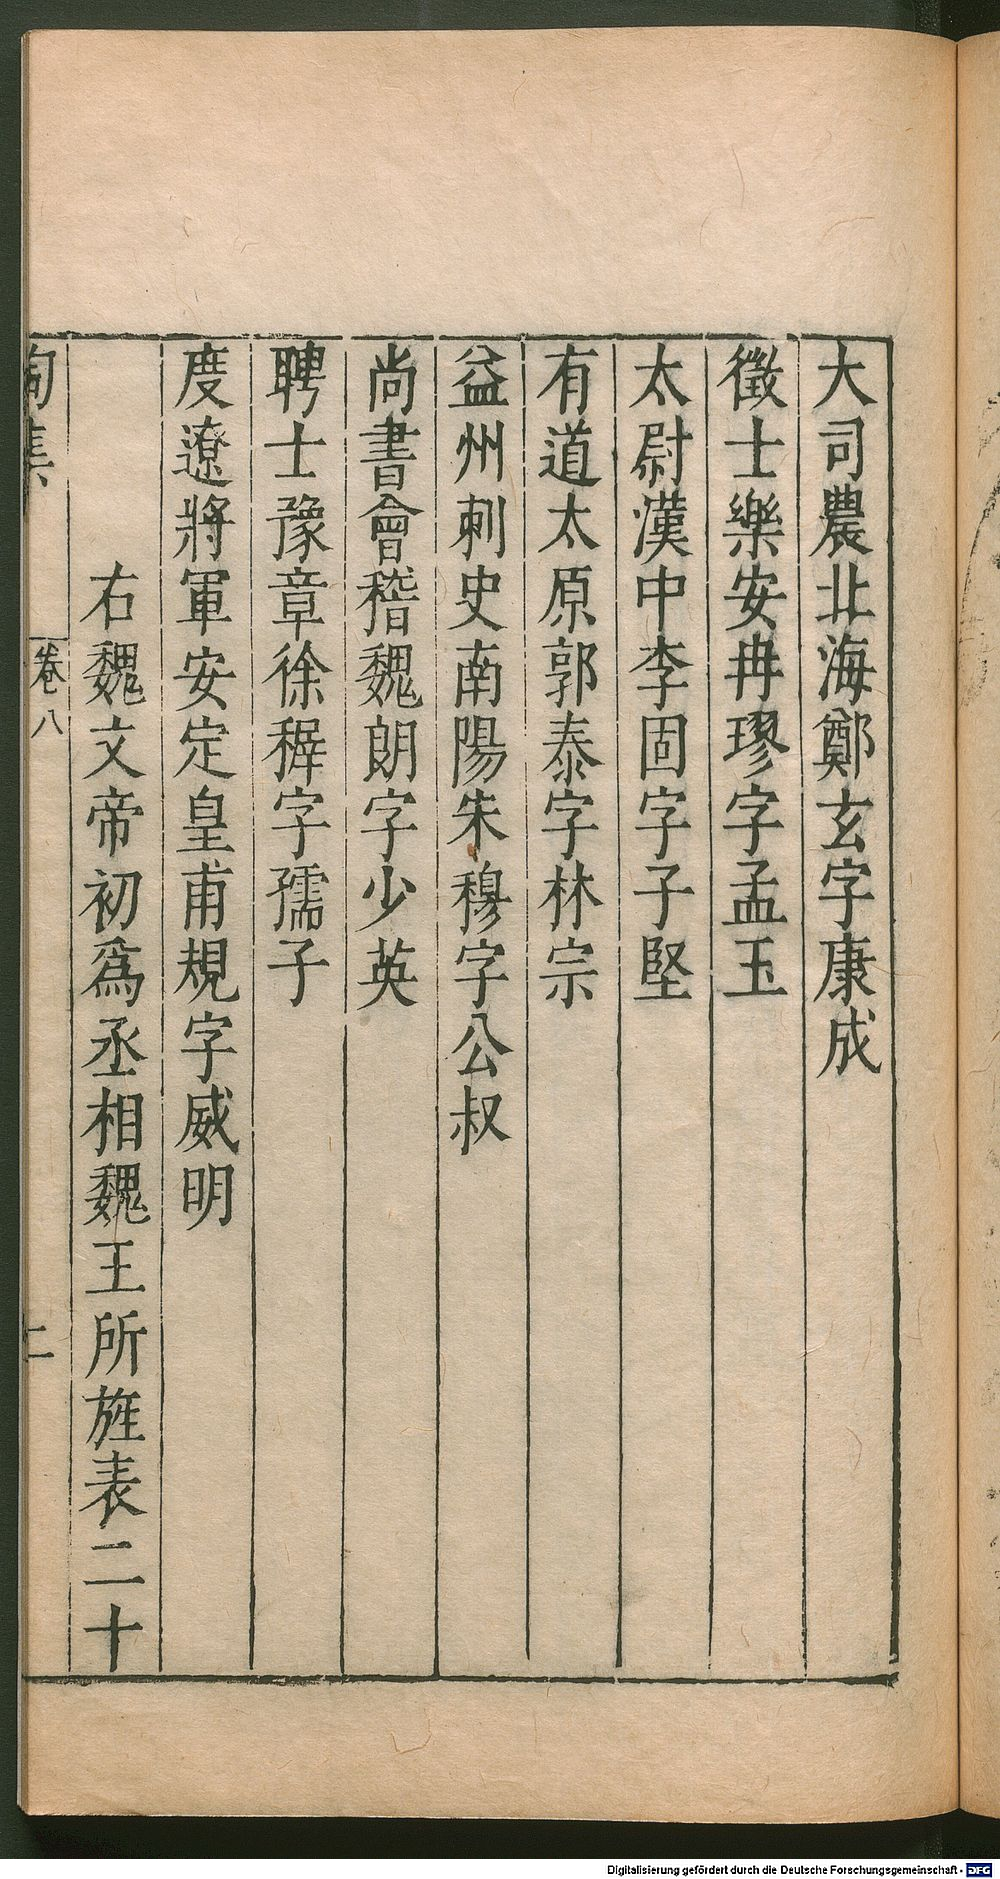 大司農北海鄭玄字康成
徵士樂安冉璆字孟玉
太尉漢中李固字子堅
有道太原郭泰字林宗
益州刺史南陽朱穆字公叔
尚書會稽魏朗字少英
聘士豫章徐穉字孺子
度遼將軍安定皇甫規字威明
右魏文帝初爲丞相魏王所旌表二十
陶集
卷八
Digitalisierung gefördert durch die Deutsche Forschungsgemeinschaft - DFG